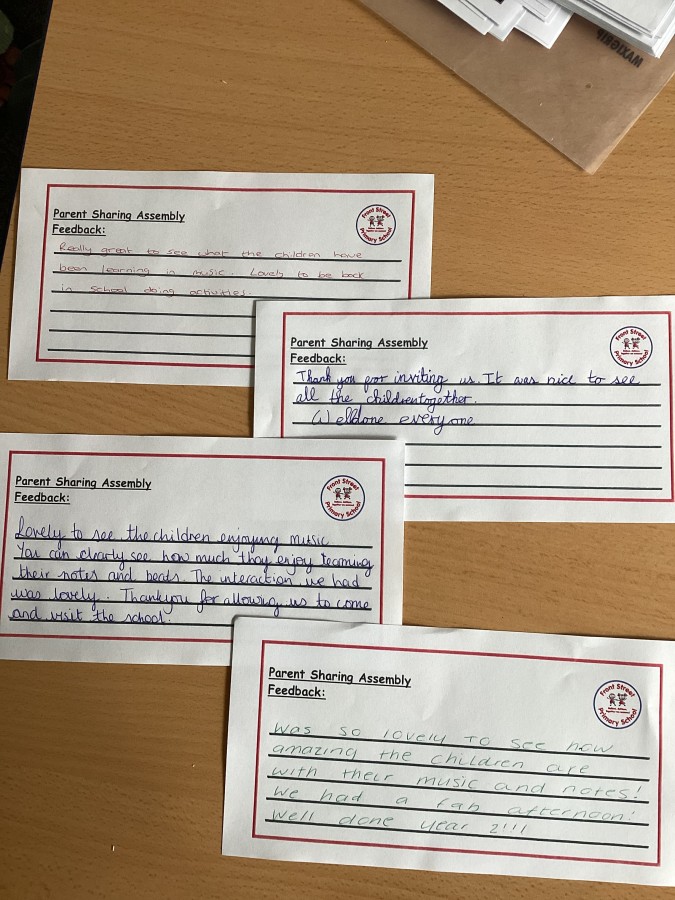 WAXIEGIP
Parent Sharing Assembly
Feedback:
Front Street
Primary School
Really great to see what the children have
been learning in music. Lovely to be back
in school doing activities.
Parent Sharing Assembly
Feedback:
Front Street
Primary School
Thank you for inviting us. It was nice to see
all the children together.
Welldone everyone
Parent Sharing Assembly
Feedback:
Front Street
Primary School
Lovely to see the children enjoying music
You can clearly see how much they enjoy learning
their notes and beats. The interaction we had
was lovely. Thankyou for allowing us to come
and visit the school.
Parent Sharing Assembly
Feedback:
Front Street
Primary School
Was so lovely to see how
amazing the children are
with their music and notes!
We had a fab afternoon!
Well done year 2!!!